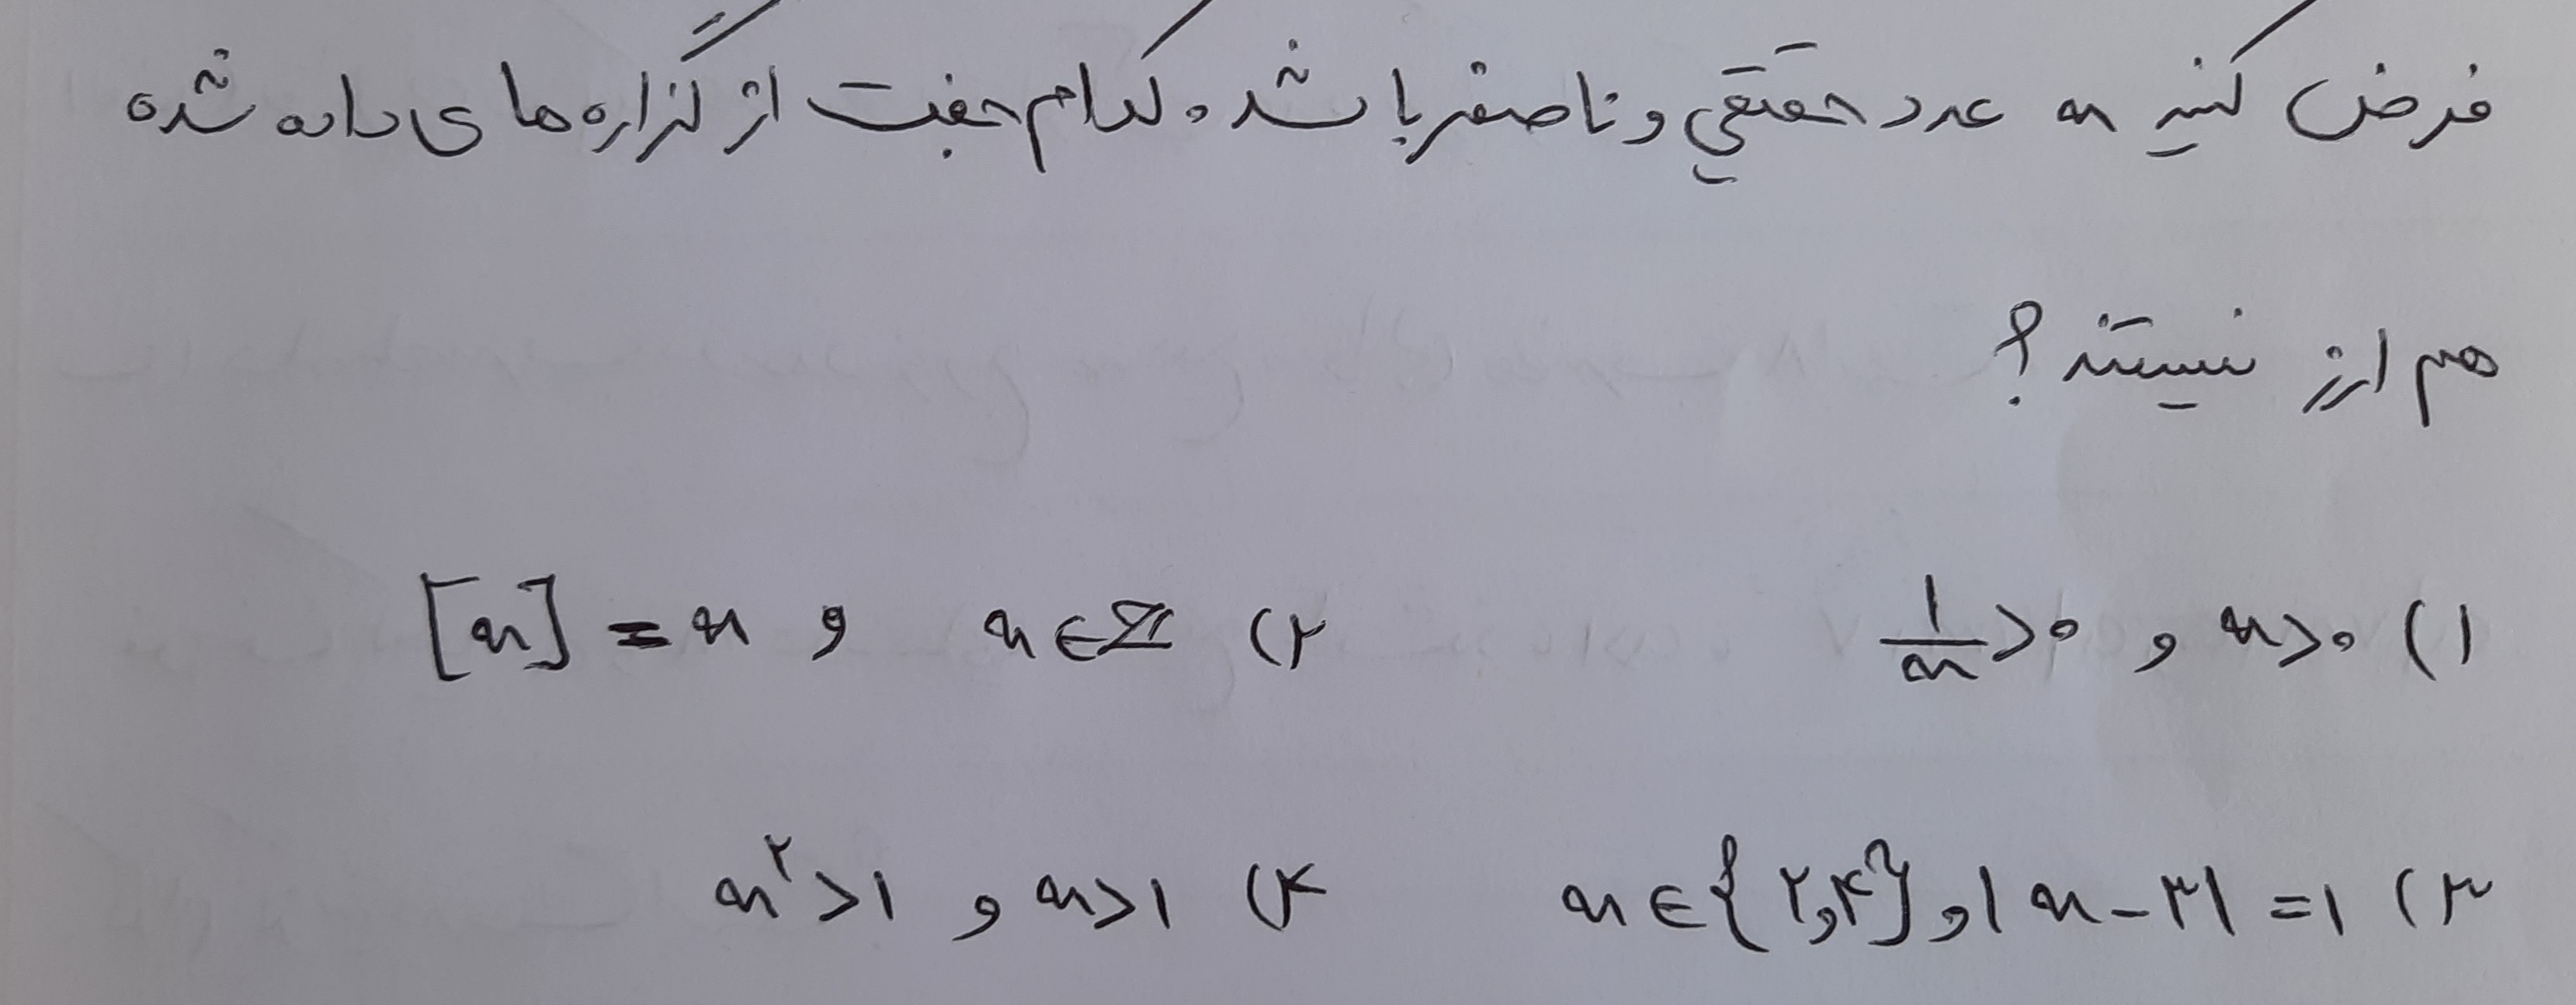 فرض کنید x عدد حقیقی و ناصفر باشد. کدام جفت از گزاره های داده شده
هم ارز نیستند؟
۱) x>۰ و ۱/x>۰
۲) x∈ℤ و [x]=x
۳) |x-۳|=۱ و x∈{۲,۴}
۴) x>۱ و x²>۱